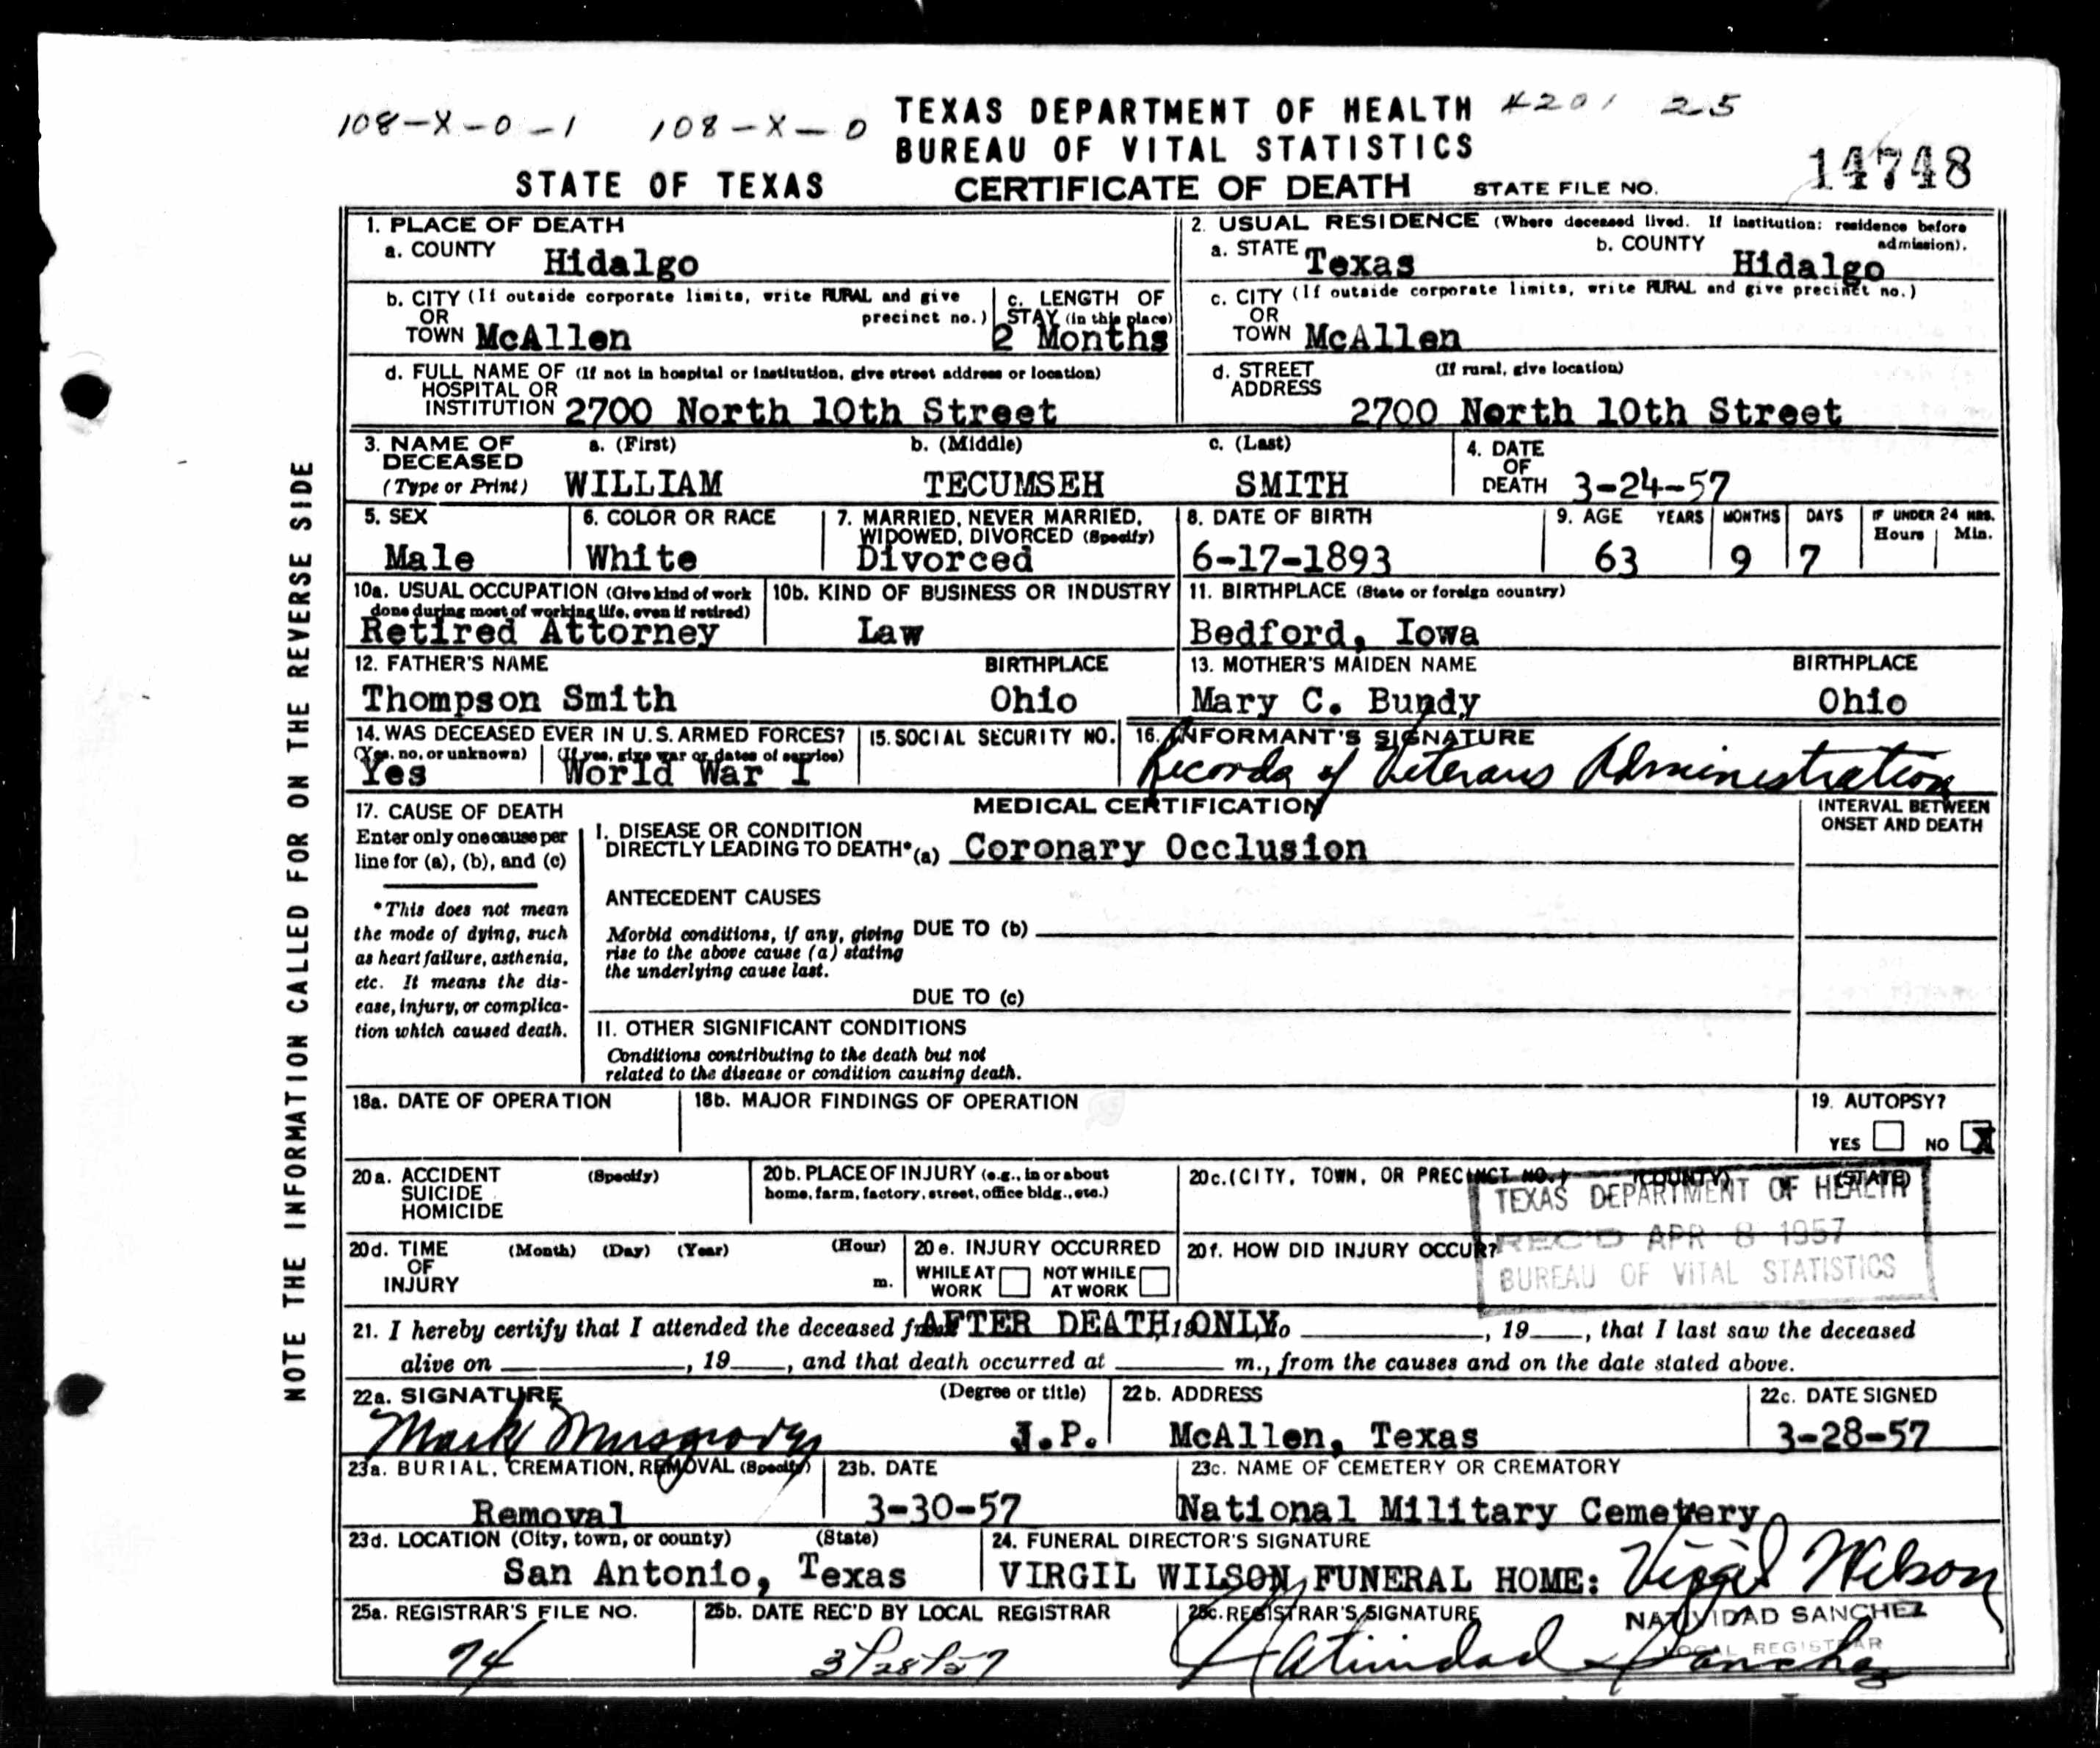 108-X-0-1 108-X-0 TEXAS DEPARTMENT OF HEALTH 4201 25
BUREAU OF VITAL STATISTICS
STATE OF TEXAS CERTIFICATE OF DEATH STATE FILE NO. 14748
NOTE THE INFORMATION CALLED FOR ON THE REVERSE SIDE
1. PLACE OF DEATH
a. COUNTY Hidalgo
2. USUAL RESIDENCE (Where deceased lived. If institution: residence before admission).
a. STATE Texas b. COUNTY Hidalgo
b. CITY (If outside corporate limits, write RURAL and give precinct no.)
OR
TOWN McAllen
c. LENGTH OF
STAY (in this place)
2 Months
c. CITY (If outside corporate limits, write RURAL and give precinct no.)
OR
TOWN McAllen
d. FULL NAME OF (If not in hospital or institution, give street address or location)
HOSPITAL OR
INSTITUTION 2700 North 10th Street
d. STREET (If rural, give location)
ADDRESS
2700 North 10th Street
3. NAME OF a. (First) b. (Middle) c. (Last)
DECEASED
(Type or Print) WILLIAM TECUMSEH SMITH
4. DATE
OF
DEATH 3-24-57
5. SEX
Male
6. COLOR OR RACE
White
7. MARRIED, NEVER MARRIED,
WIDOWED, DIVORCED (Specify)
Divorced
8. DATE OF BIRTH
6-17-1893
9. AGE YEARS MONTHS DAYS IF UNDER 24 HRS.
Hours Min.
63 9 7
10a. USUAL OCCUPATION (Give kind of work
done during most of working life, even if retired)
Retired Attorney
10b. KIND OF BUSINESS OR INDUSTRY
Law
11. BIRTHPLACE (State or foreign country)
Bedford, Iowa
12. FATHER'S NAME BIRTHPLACE
Thompson Smith Ohio
13. MOTHER'S MAIDEN NAME BIRTHPLACE
Mary C. Bundy Ohio
14. WAS DECEASED EVER IN U.S. ARMED FORCES?
(Yes, no, or unknown) (If yes, give war or dates of service)
Yes World War I
15. SOCIAL SECURITY NO.
16. INFORMANT'S SIGNATURE
Records of Veterans Administration
17. CAUSE OF DEATH
Enter only one cause per
line for (a), (b), and (c)
*This does not mean
the mode of dying, such
as heart failure, asthenia,
etc. It means the dis-
ease, injury, or complica-
tion which caused death.
MEDICAL CERTIFICATION
INTERVAL BETWEEN
ONSET AND DEATH
I. DISEASE OR CONDITION
DIRECTLY LEADING TO DEATH*(a) Coronary Occlusion
ANTECEDENT CAUSES
Morbid conditions, if any, giving
rise to the above cause (a) stating
the underlying cause last.
DUE TO (b)
DUE TO (c)
II. OTHER SIGNIFICANT CONDITIONS
Conditions contributing to the death but not
related to the disease or condition causing death.
18a. DATE OF OPERATION
18b. MAJOR FINDINGS OF OPERATION
19. AUTOPSY?
YES NO X
20a. ACCIDENT (Specify)
SUICIDE
HOMICIDE
20b. PLACE OF INJURY (e.g., in or about
home, farm, factory, street, office bldg., etc.)
20c. (CITY, TOWN, OR PRECINCT NO.) (COUNTY) (STATE)
TEXAS DEPARTMENT OF HEALTH
REC'D APR 8 1957
BUREAU OF VITAL STATISTICS
20d. TIME (Month) (Day) (Year) (Hour)
OF
INJURY m.
20e. INJURY OCCURRED
WHILE AT WORK NOT WHILE AT WORK
20f. HOW DID INJURY OCCUR?
21. I hereby certify that I attended the deceased from AFTER DEATH ONLY, 19 to , 19 , that I last saw the deceased
alive on , 19 , and that death occurred at m., from the causes and on the date stated above.
22a. SIGNATURE (Degree or title)
Mark Musgrove J.P.
22b. ADDRESS
McAllen, Texas
22c. DATE SIGNED
3-28-57
23a. BURIAL, CREMATION, REMOVAL (Specify)
Removal
23b. DATE
3-30-57
23c. NAME OF CEMETERY OR CREMATORY
National Military Cemetery
23d. LOCATION (City, town, or county) (State)
San Antonio, Texas
24. FUNERAL DIRECTOR'S SIGNATURE
VIRGIL WILSON FUNERAL HOME: Virgil Wilson
25a. REGISTRAR'S FILE NO.
74
25b. DATE REC'D BY LOCAL REGISTRAR
3/28/57
25c. REGISTRAR'S SIGNATURE
NATIVIDAD SANCHEZ
LOCAL REGISTRAR
Natividad Sanchez